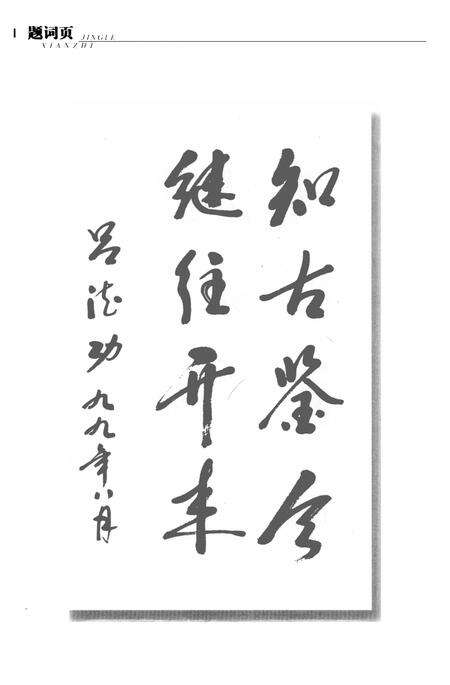 题词页 JINGLE
XIANZHI
知古鉴今
继往开来
吕德功 九九年八月